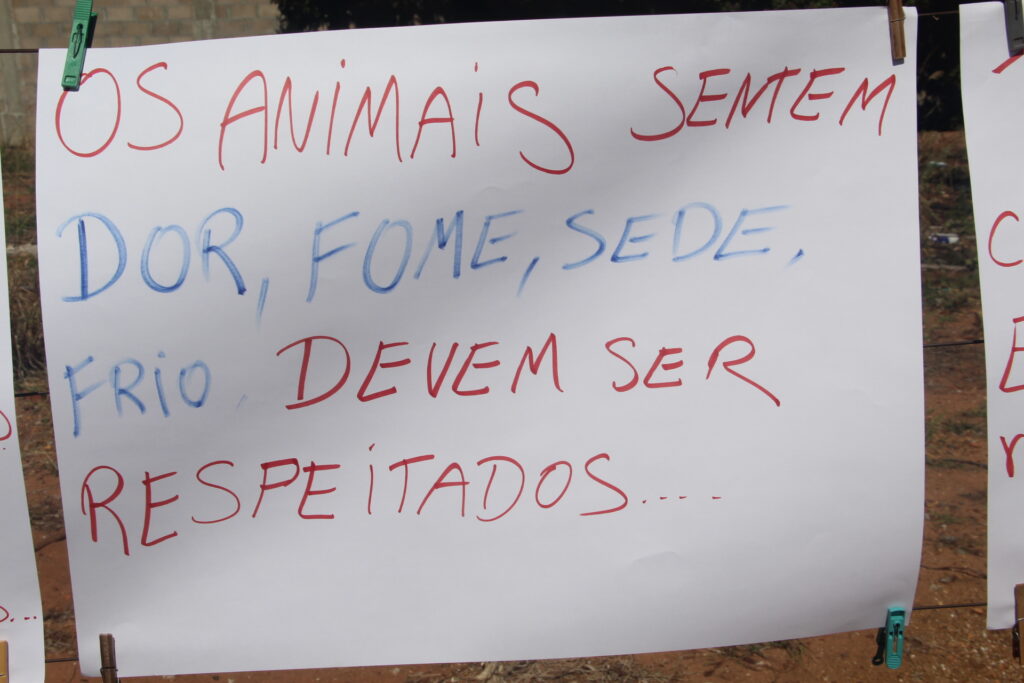 OS ANIMAIS SENTEM
DOR, FOME, SEDE,
FRIO, DEVEM SER
RESPEITADOS.....